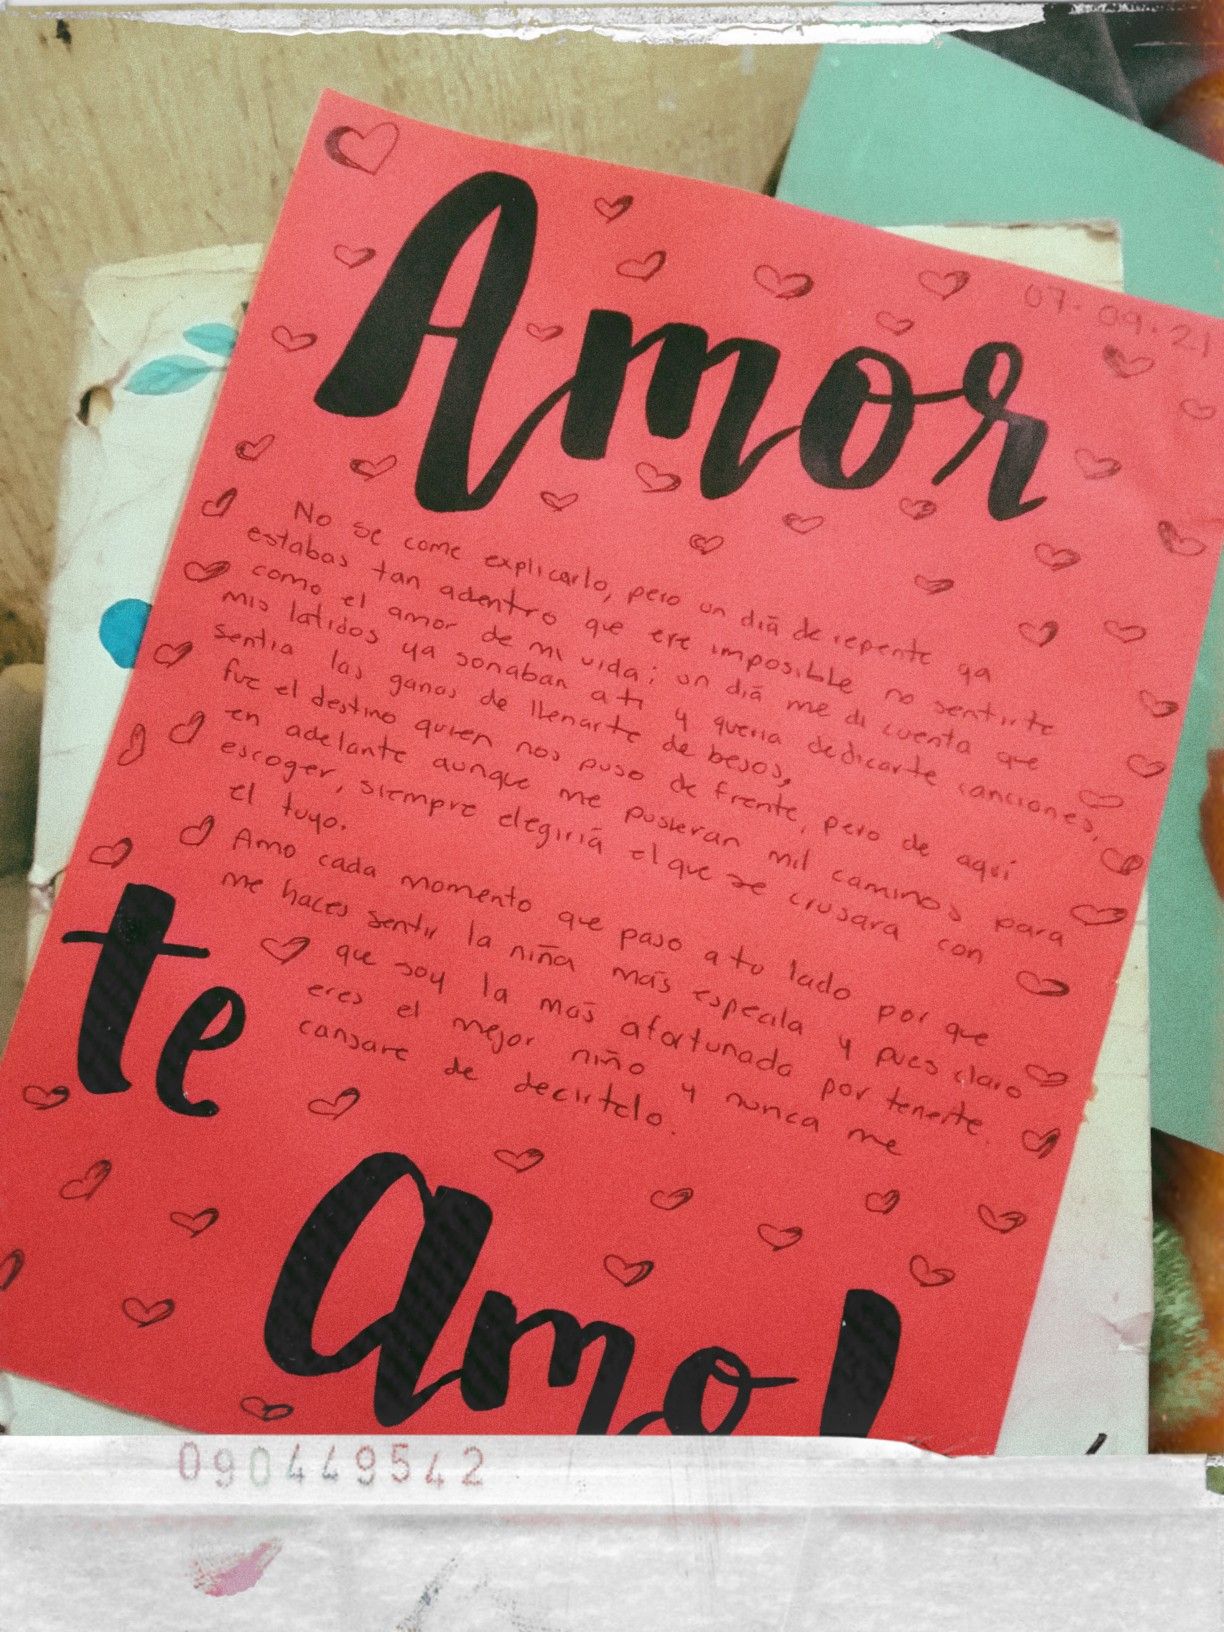 07.09.21
Amor
No se come explicarlo, pero un diá de repente ya
estabas tan adentro que ere imposible no sentirte
como el amor de mi vida; un diá me di cuenta que
mis latidos ya sonaban a ti y queria dedicarte canciones,
sentia las ganas de llenarte de besos,
fue el destino quien nos puso de frente, pero de aqui
en adelante aunque me pusieran mil caminos para
escoger, siempre elegiriá el que se crusara con
el tuyo.
Amo cada momento que paso a tu lado por que
me haces sentir la niña más especila y pues claro
que soy la más afortunada por tenerte.
eres el mejor niño y nunca me
cansare de decirtelo.
te
amo!
090449542